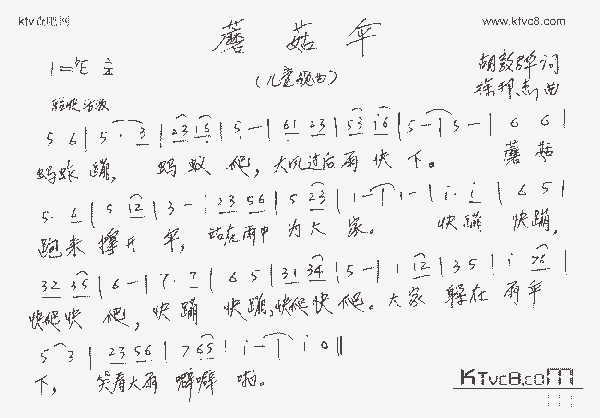 ktv吧 网
www.ktvc8.com
蘑 菇 伞
(儿童歌曲)
胡敦骅 词
1=♭E
徐 曲
5 6 | 5 · 3 | 23 15 | 5 - | 61 23 | 53 16 | 5 - | 5 - | 6 6 |
蚂蚱 蹦, 蚂 蚁 爬, 大风过后雨 快 下。 蘑 菇
5 · 6 | 5 12 | 3 - | 23 56 | 5 23 | 1 - | 1 - | i · i | 6 5 |
跑来 撑开 伞, 站在雨中 为 大 家。 快蹦 快蹦,
32 35 | 6 - | 7 · 7 | 6 5 | 31 34 | 5 - | 1 12 | 3 5 | i 76 |
快爬快 爬, 快 蹦 快蹦,快爬快爬。大家 躲在 雨伞
5 3 | 23 56 | 7 65 | i - | i 0 ‖
下, 笑看大雨 噼噼 啪。
KTvc8.com